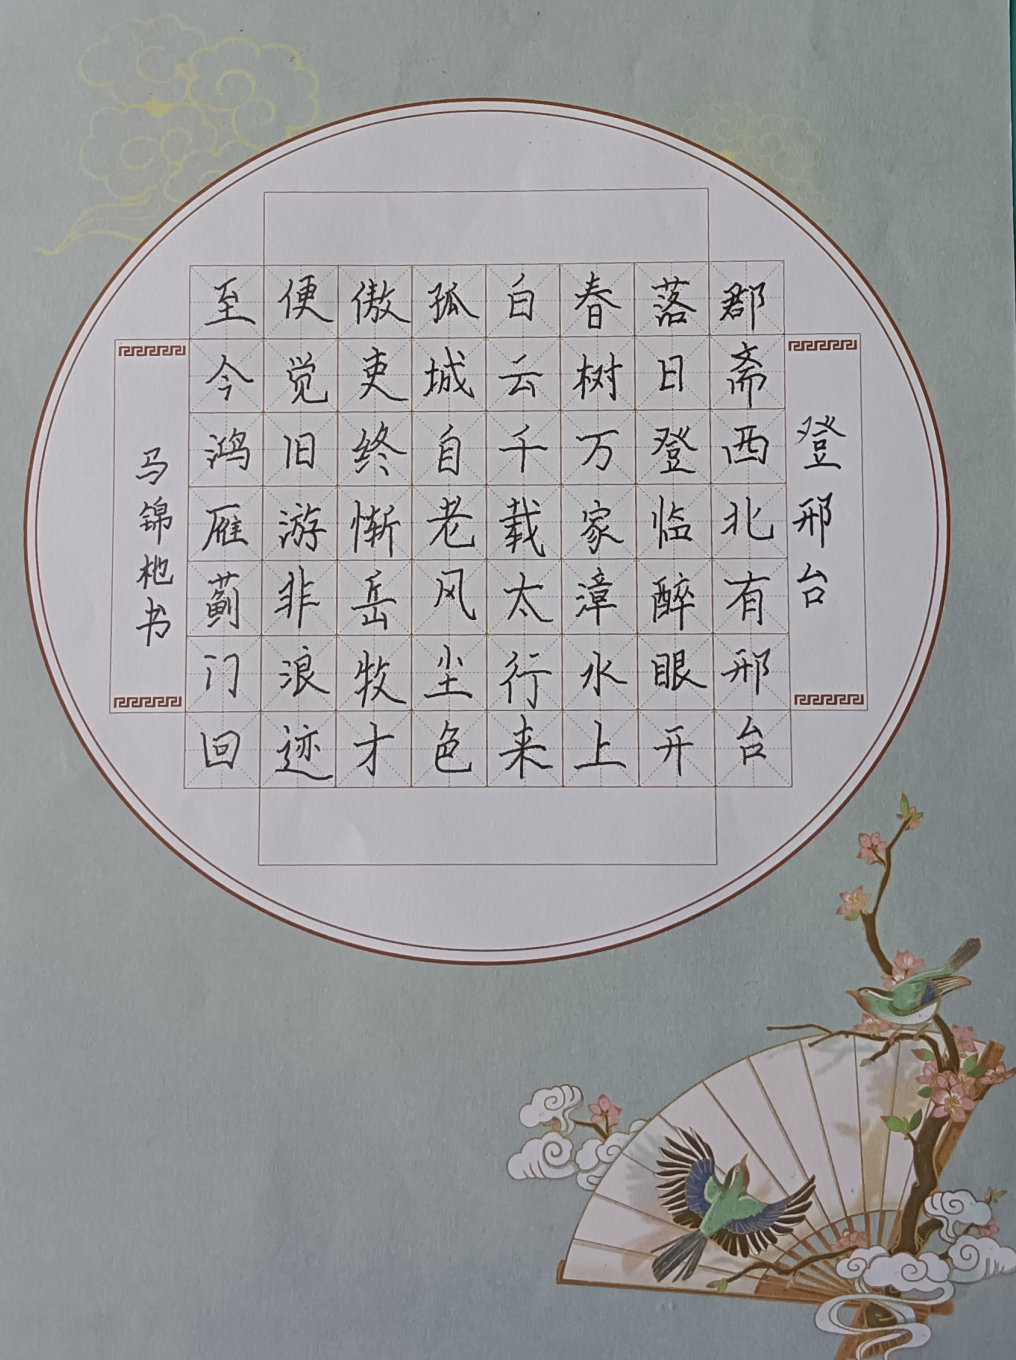 登邢台
郡斋西北有邢台
落日登临醉眼开
春树万家漳水上
白云千载太行来
孤城自老风尘色
傲吏终惭岳牧才
便觉旧游非浪迹
至今鸿雁蓟门回
马锦杝书